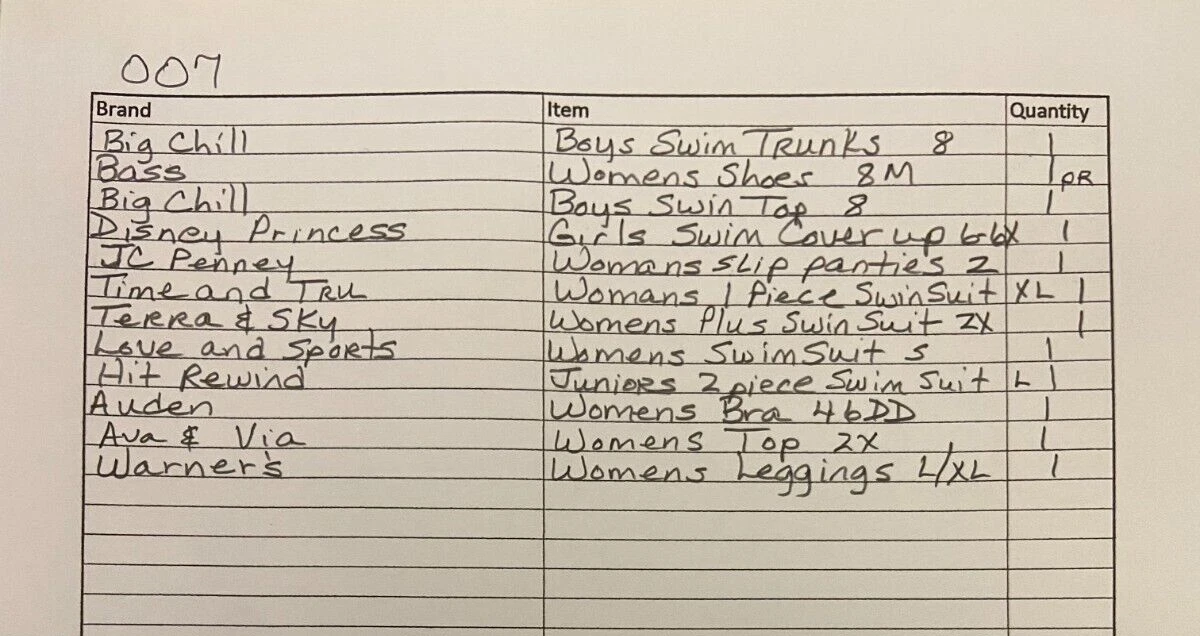 007
Brand Item Quantity
Big Chill Boys Swim Trunks 8 1
Bass Womens Shoes 8M 1 PR
Big Chill Boys Swin Top 8 1
Disney Princess Girls Swim Cover up 6-6X 1
JC Penney Womans slip panties 2 1
Time and Tru Womans 1 Piece SwinSuit XL 1
Terra & Sky Womens Plus Swin Suit 2X 1
Love and Sports Womens SwimSuit S 1
Hit Rewind Juniors 2 piece Swim Suit L 1
Auden Womens Bra 46DD 1
Ava & Via Womens Top 2X 1
Warner's Womens Leggings L/XL 1